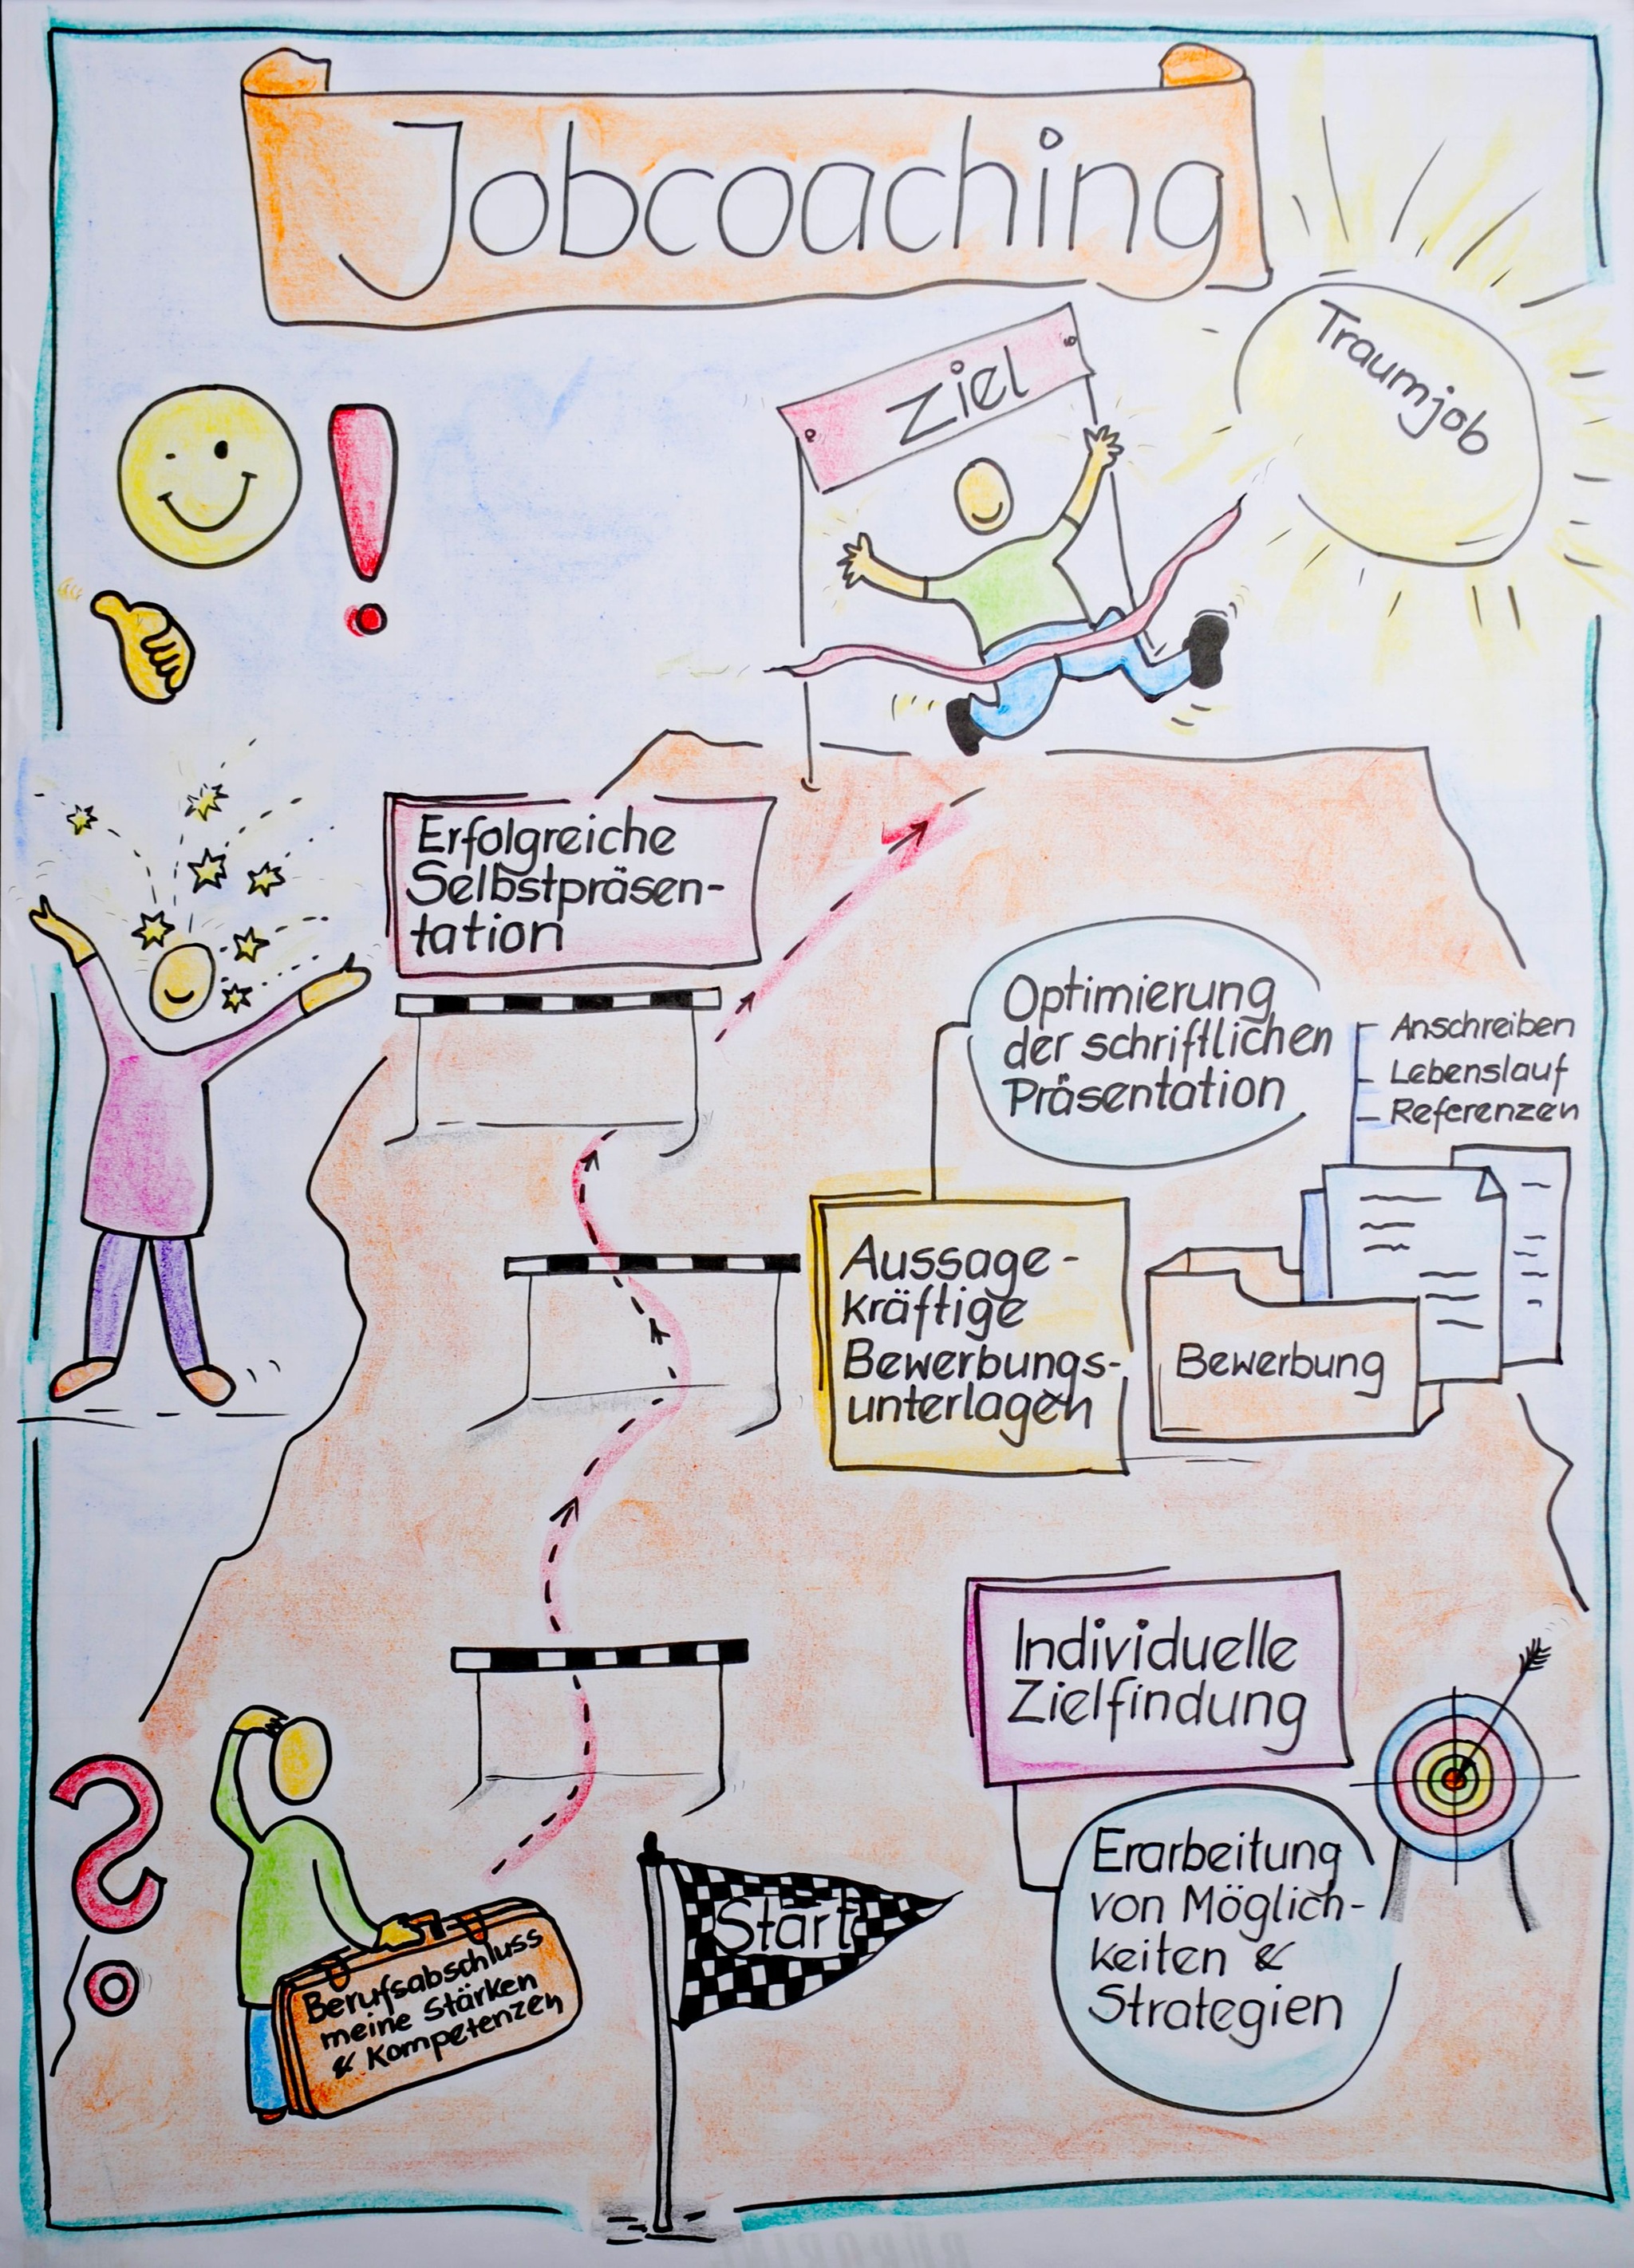 Jobcoaching
Traumjob
Ziel
Erfolgreiche
Selbstpräsen-
tation
Optimierung
der schriftlichen
Präsentation
Anschreiben
Lebenslauf
Referenzen
Aussage-
kräftige
Bewerbungs-
unterlagen
Bewerbung
Individuelle
Zielfindung
Erarbeitung
von Möglich-
keiten &
Strategien
Start
Berufsabschluss
meine Stärken
& Kompetenzen